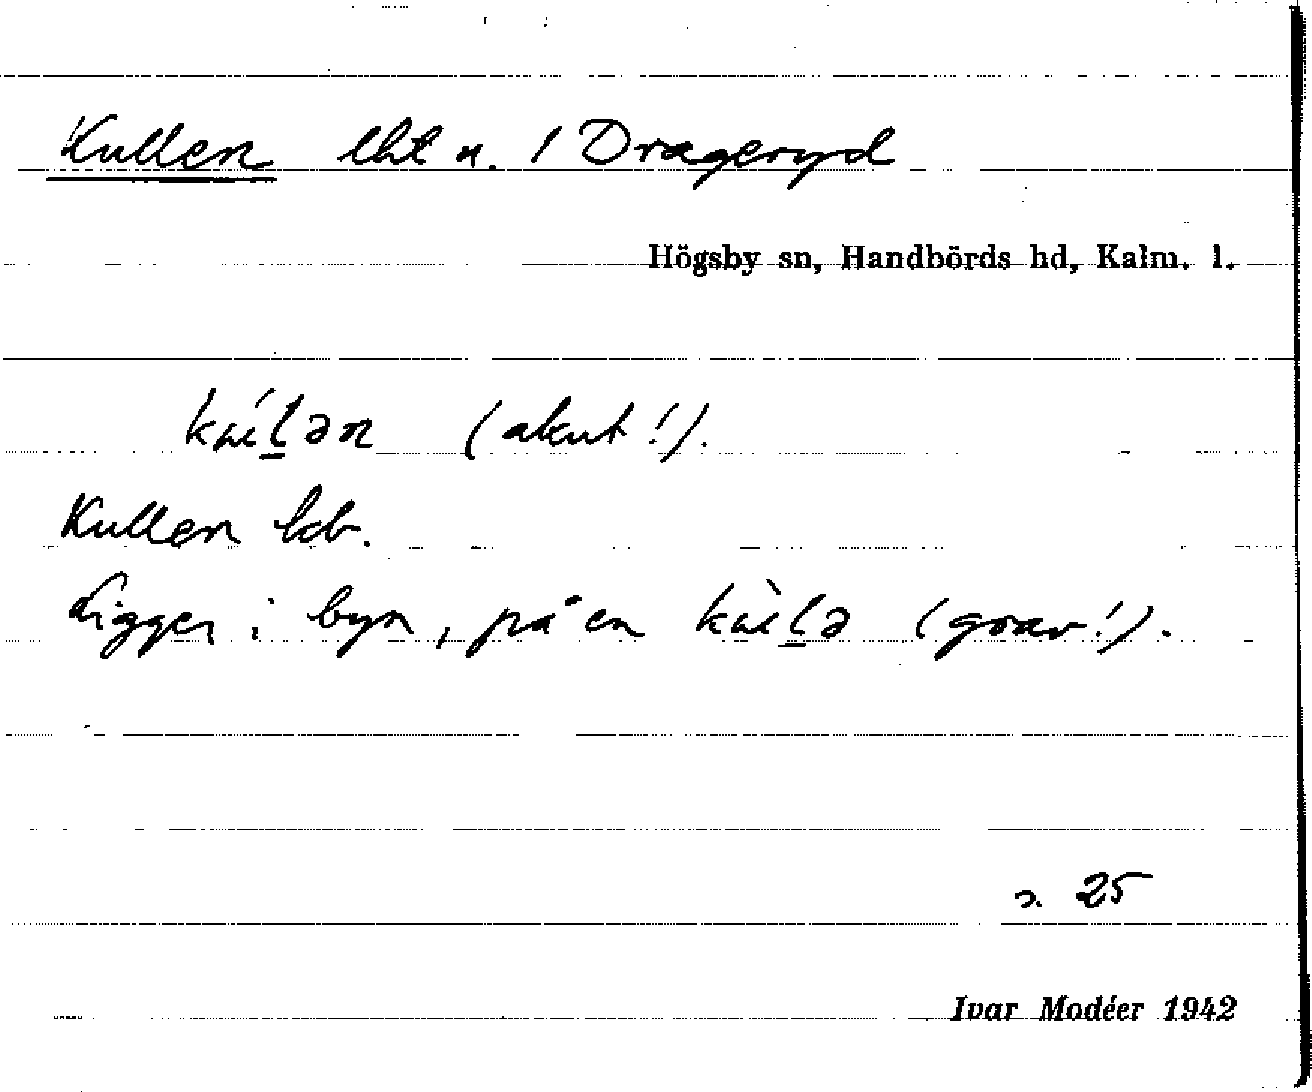 Kullen lht n. / Drageryd
Högsby sn, Handbörds hd, Kalm. l.
(akut!).
Kullen
Ligger i byn, på en (grav!).
s. 25
Ivar Modéer 1942